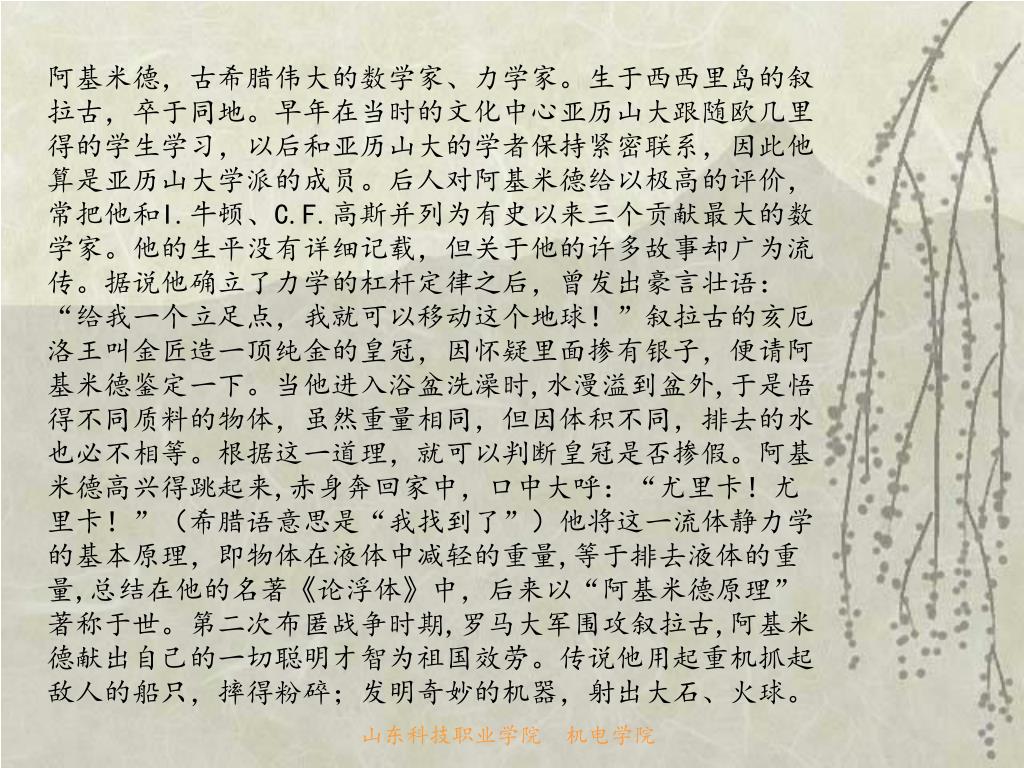 阿基米德，古希腊伟大的数学家、力学家。生于西西里岛的叙
拉古，卒于同地。早年在当时的文化中心亚历山大跟随欧几里
得的学生学习，以后和亚历山大的学者保持紧密联系，因此他
算是亚历山大学派的成员。后人对阿基米德给以极高的评价，
常把他和I.牛顿、C.F.高斯并列为有史以来三个贡献最大的数
学家。他的生平没有详细记载，但关于他的许多故事却广为流
传。据说他确立了力学的杠杆定律之后，曾发出豪言壮语：
“给我一个立足点，我就可以移动这个地球！”叙拉古的亥厄
洛王叫金匠造一顶纯金的皇冠，因怀疑里面掺有银子，便请阿
基米德鉴定一下。当他进入浴盆洗澡时,水漫溢到盆外,于是悟
得不同质料的物体，虽然重量相同，但因体积不同，排去的水
也必不相等。根据这一道理，就可以判断皇冠是否掺假。阿基
米德高兴得跳起来,赤身奔回家中，口中大呼：“尤里卡！尤
里卡！”（希腊语意思是“我找到了”）他将这一流体静力学
的基本原理，即物体在液体中减轻的重量,等于排去液体的重
量,总结在他的名著《论浮体》中，后来以“阿基米德原理”
著称于世。第二次布匿战争时期,罗马大军围攻叙拉古,阿基米
德献出自己的一切聪明才智为祖国效劳。传说他用起重机抓起
敌人的船只，摔得粉碎；发明奇妙的机器，射出大石、火球。
山东科技职业学院 机电学院